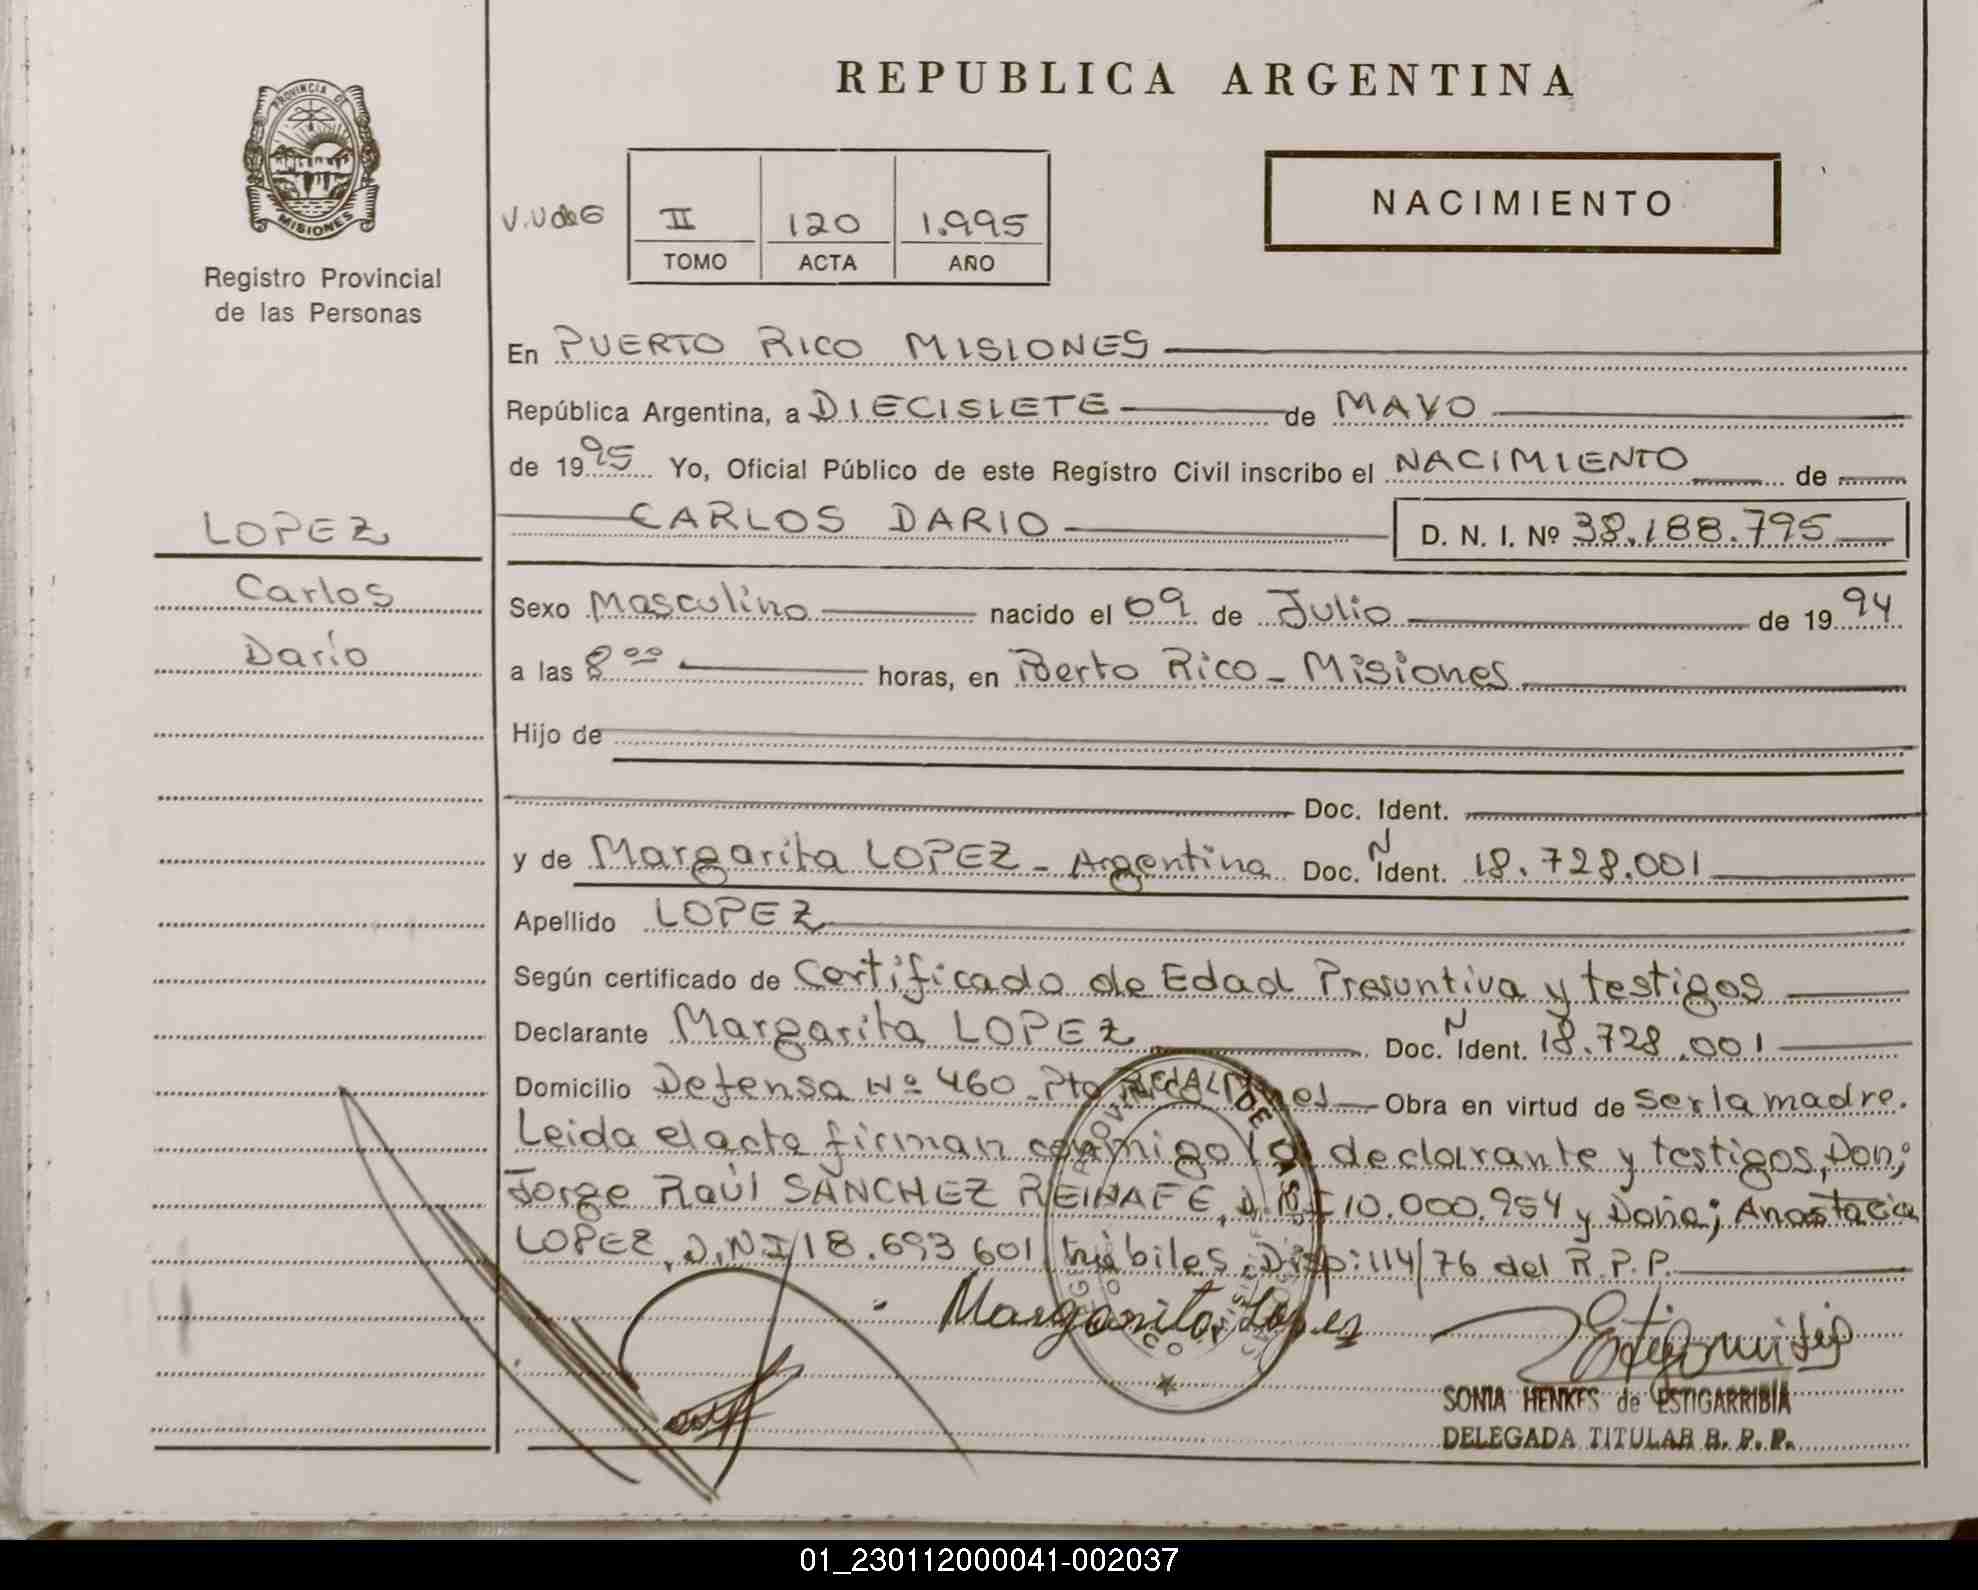 PROVINCIA DE
MISIONES
Registro Provincial
de las Personas
REPUBLICA ARGENTINA
V.U de G
II 120 1.995
TOMO ACTA AÑO
NACIMIENTO
En PUERTO RICO MISIONES
República Argentina, a DIECISIETE de MAYO
de 1995 Yo, Oficial Público de este Registro Civil inscribo el NACIMIENTO de
LOPEZ
CARLOS DARIO D. N. I. Nº 38.188.795
Carlos
Sexo Masculino nacido el 09 de Julio de 1994
Darío
a las 8 00 horas, en Puerto Rico - Misiones
Hijo de
Doc. Ident.
y de Margarita LOPEZ - Argentina Doc. N Ident. 18.728.001
Apellido LOPEZ
Según certificado de Certificado de Edad Presuntiva y testigos
Declarante Margarita LOPEZ Doc. N Ident. 18.728.001
Domicilio Defensa Nº 460 - Pto Obra en virtud de ser la madre.
Leida el acta firman conmigo la declarante y testigos, Don;
Jorge Raúl SANCHEZ REINAFE, D.N.I 10.000.954 y Doña; Anastacia
LOPEZ, D.N.I 18.693 601 hábiles. Disp: 114/76 del R.P.P.
Margarita Lopez
SONIA HENKES de ESTIGARRIBIA
DELEGADA TITULAR R. P. P.
01_230112000041-002037